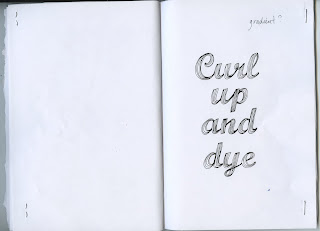 gradient?
Curl
up
and
dye